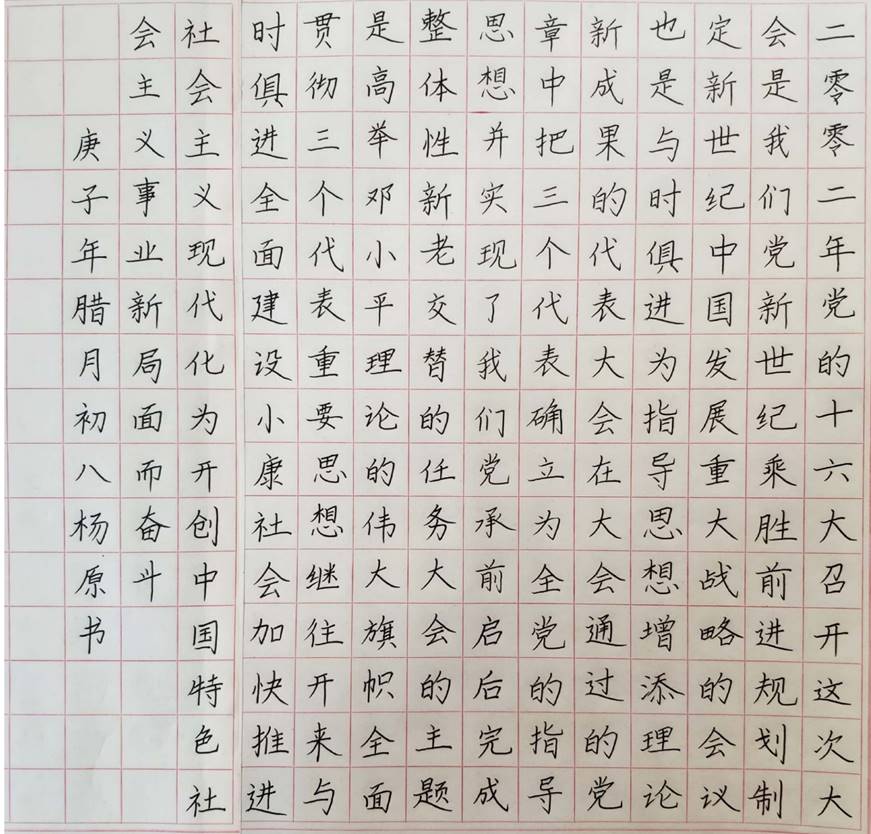 二零零二年党的十六大召开这次大
会是我们党新世纪乘胜前进规划制
定新世纪中国发展重大战略的会议
也是与时俱进为指导思想增添理论
新成果的代表大会在大会通过的党
章中把三个代表确立为全党的指导
思想并实现了我们党承前启后完成
整体性新老交替的任务大会的主题
是高举邓小平理论的伟大旗帜全面
贯彻三个代表重要思想继往开来与
时俱进全面建设小康社会加快推进
社会主义现代化为开创中国特色社
会主义事业新局面而奋斗
庚子年腊月初八杨原书